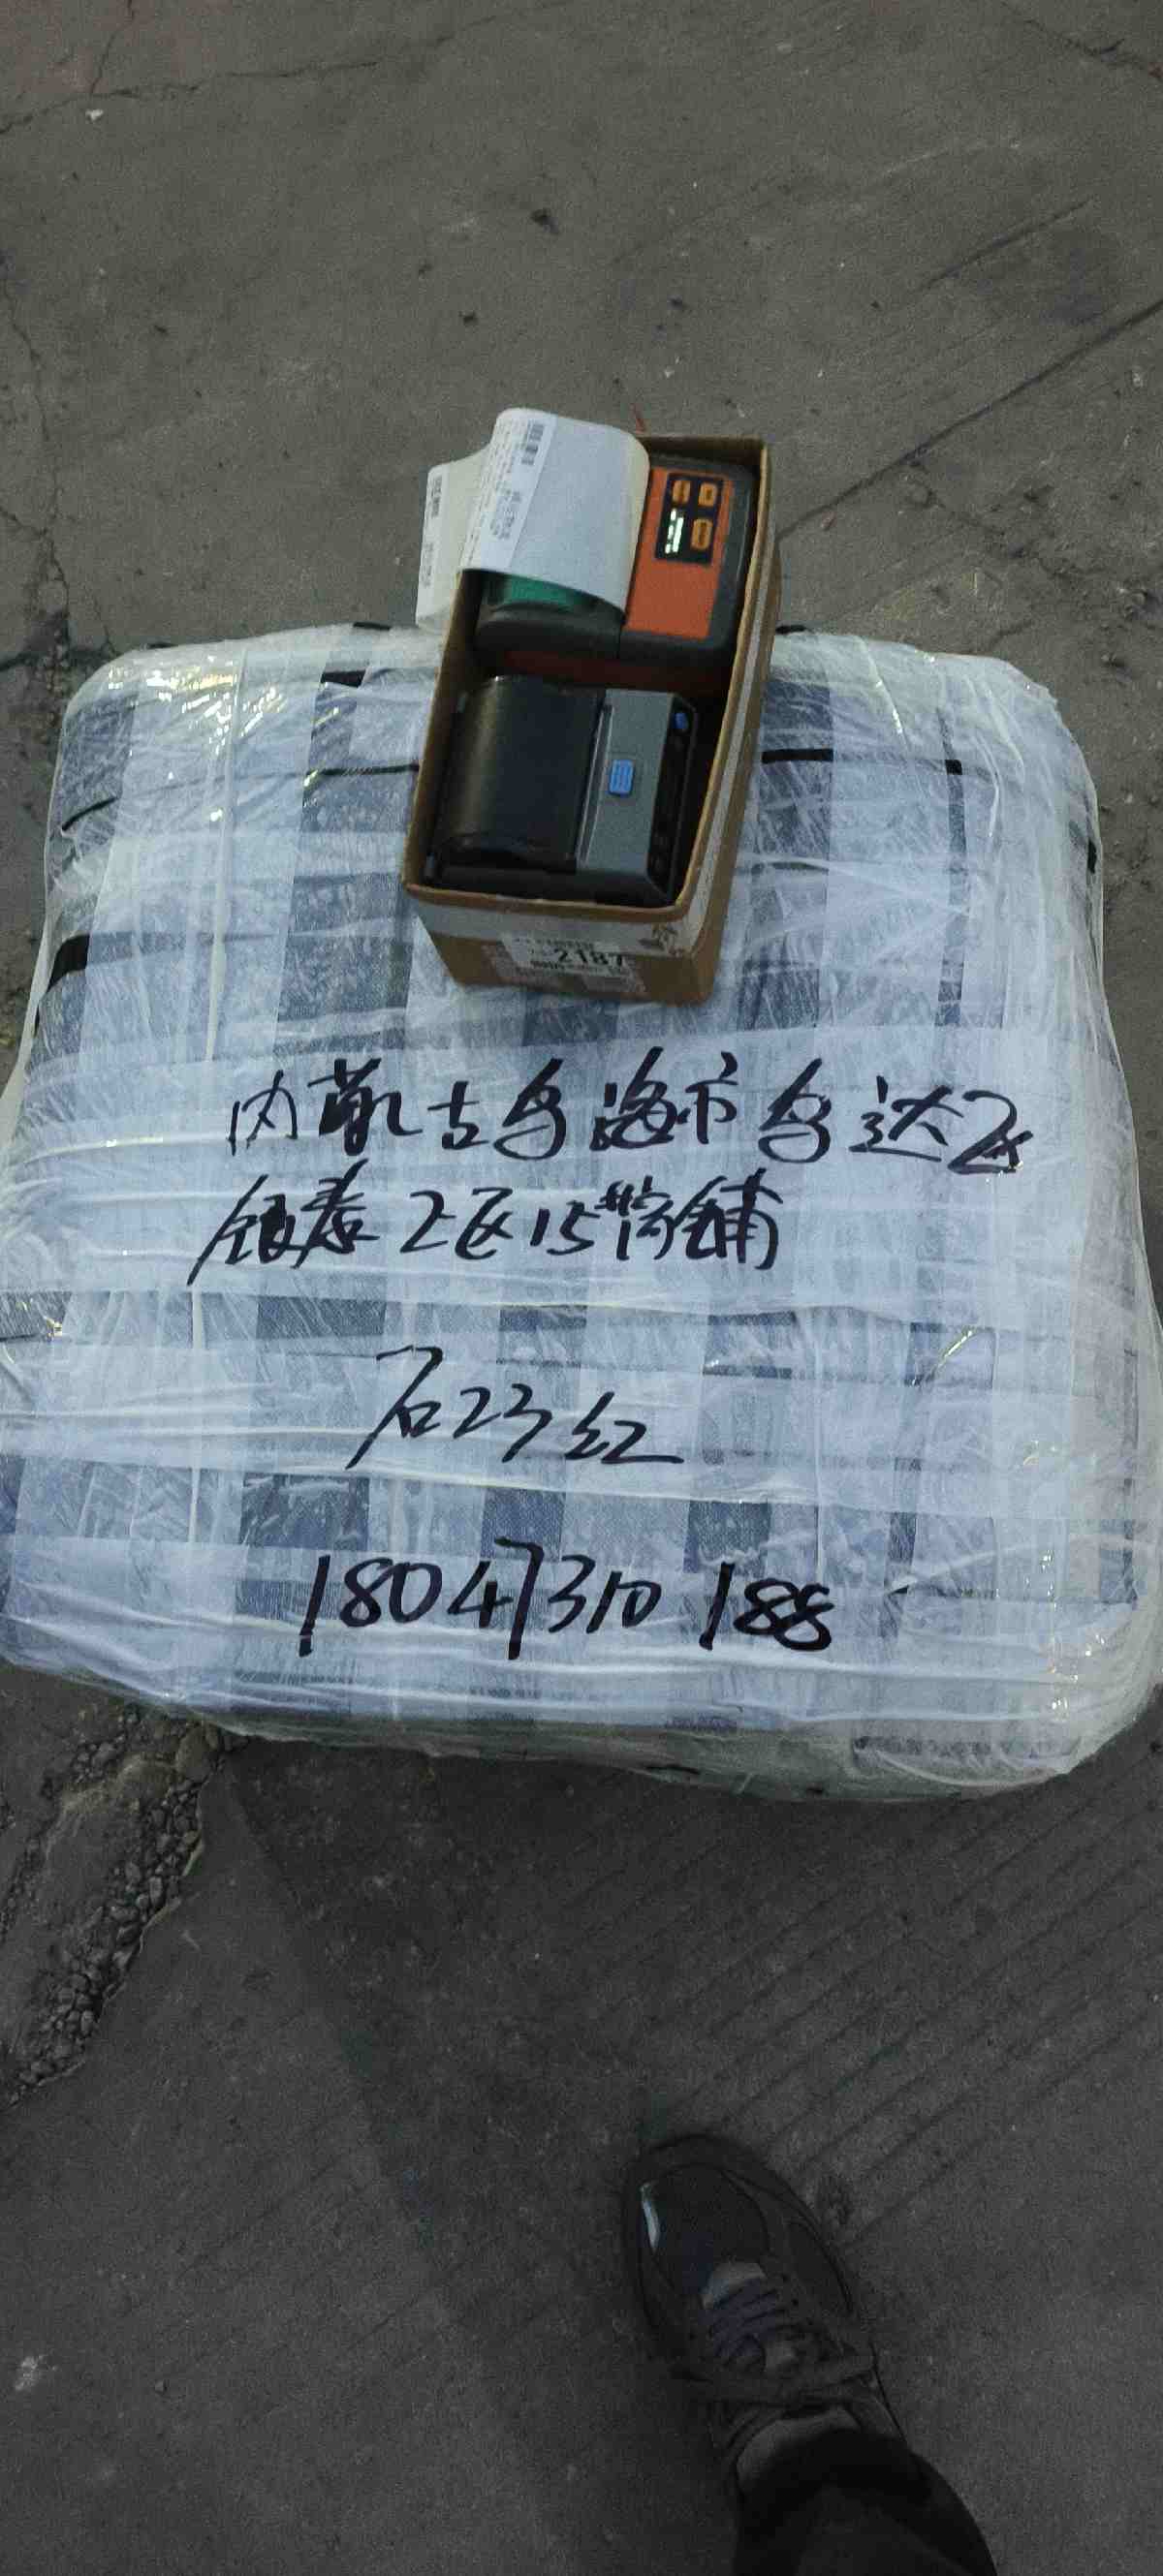 2187
内蒙古乌海市乌达区
银泰2区15商铺
石23红
18047310188